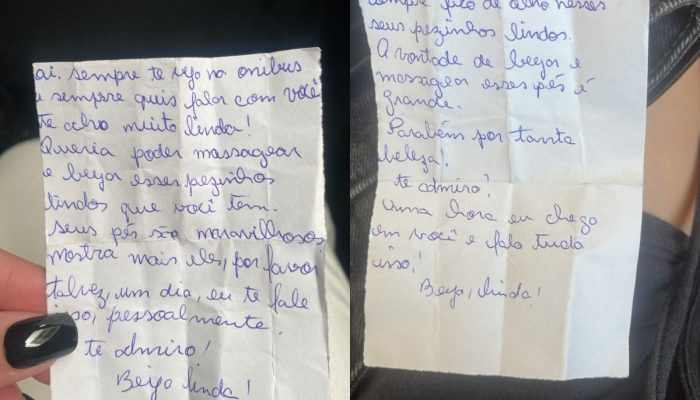 oi. sempre te vejo no onibus
e sempre quis falar com você
te acho muito linda!
Queria poder massagear
e beijar esses pezinhos
lindos que você tem.
seus pés são maravilhosos
mostra mais eles, por favor
talvez, um dia, eu te fale
isso, pessoalmente.
te admiro!
Beijo linda!
sempre fico de olho nesses
seus pezinhos lindos.
A vontade de beijar e
massagear esses pés é
grande.
Parabéns por tanta
beleza!
te admiro!
uma hora eu chego
em você e falo tudo
isso!
Beijo, linda!